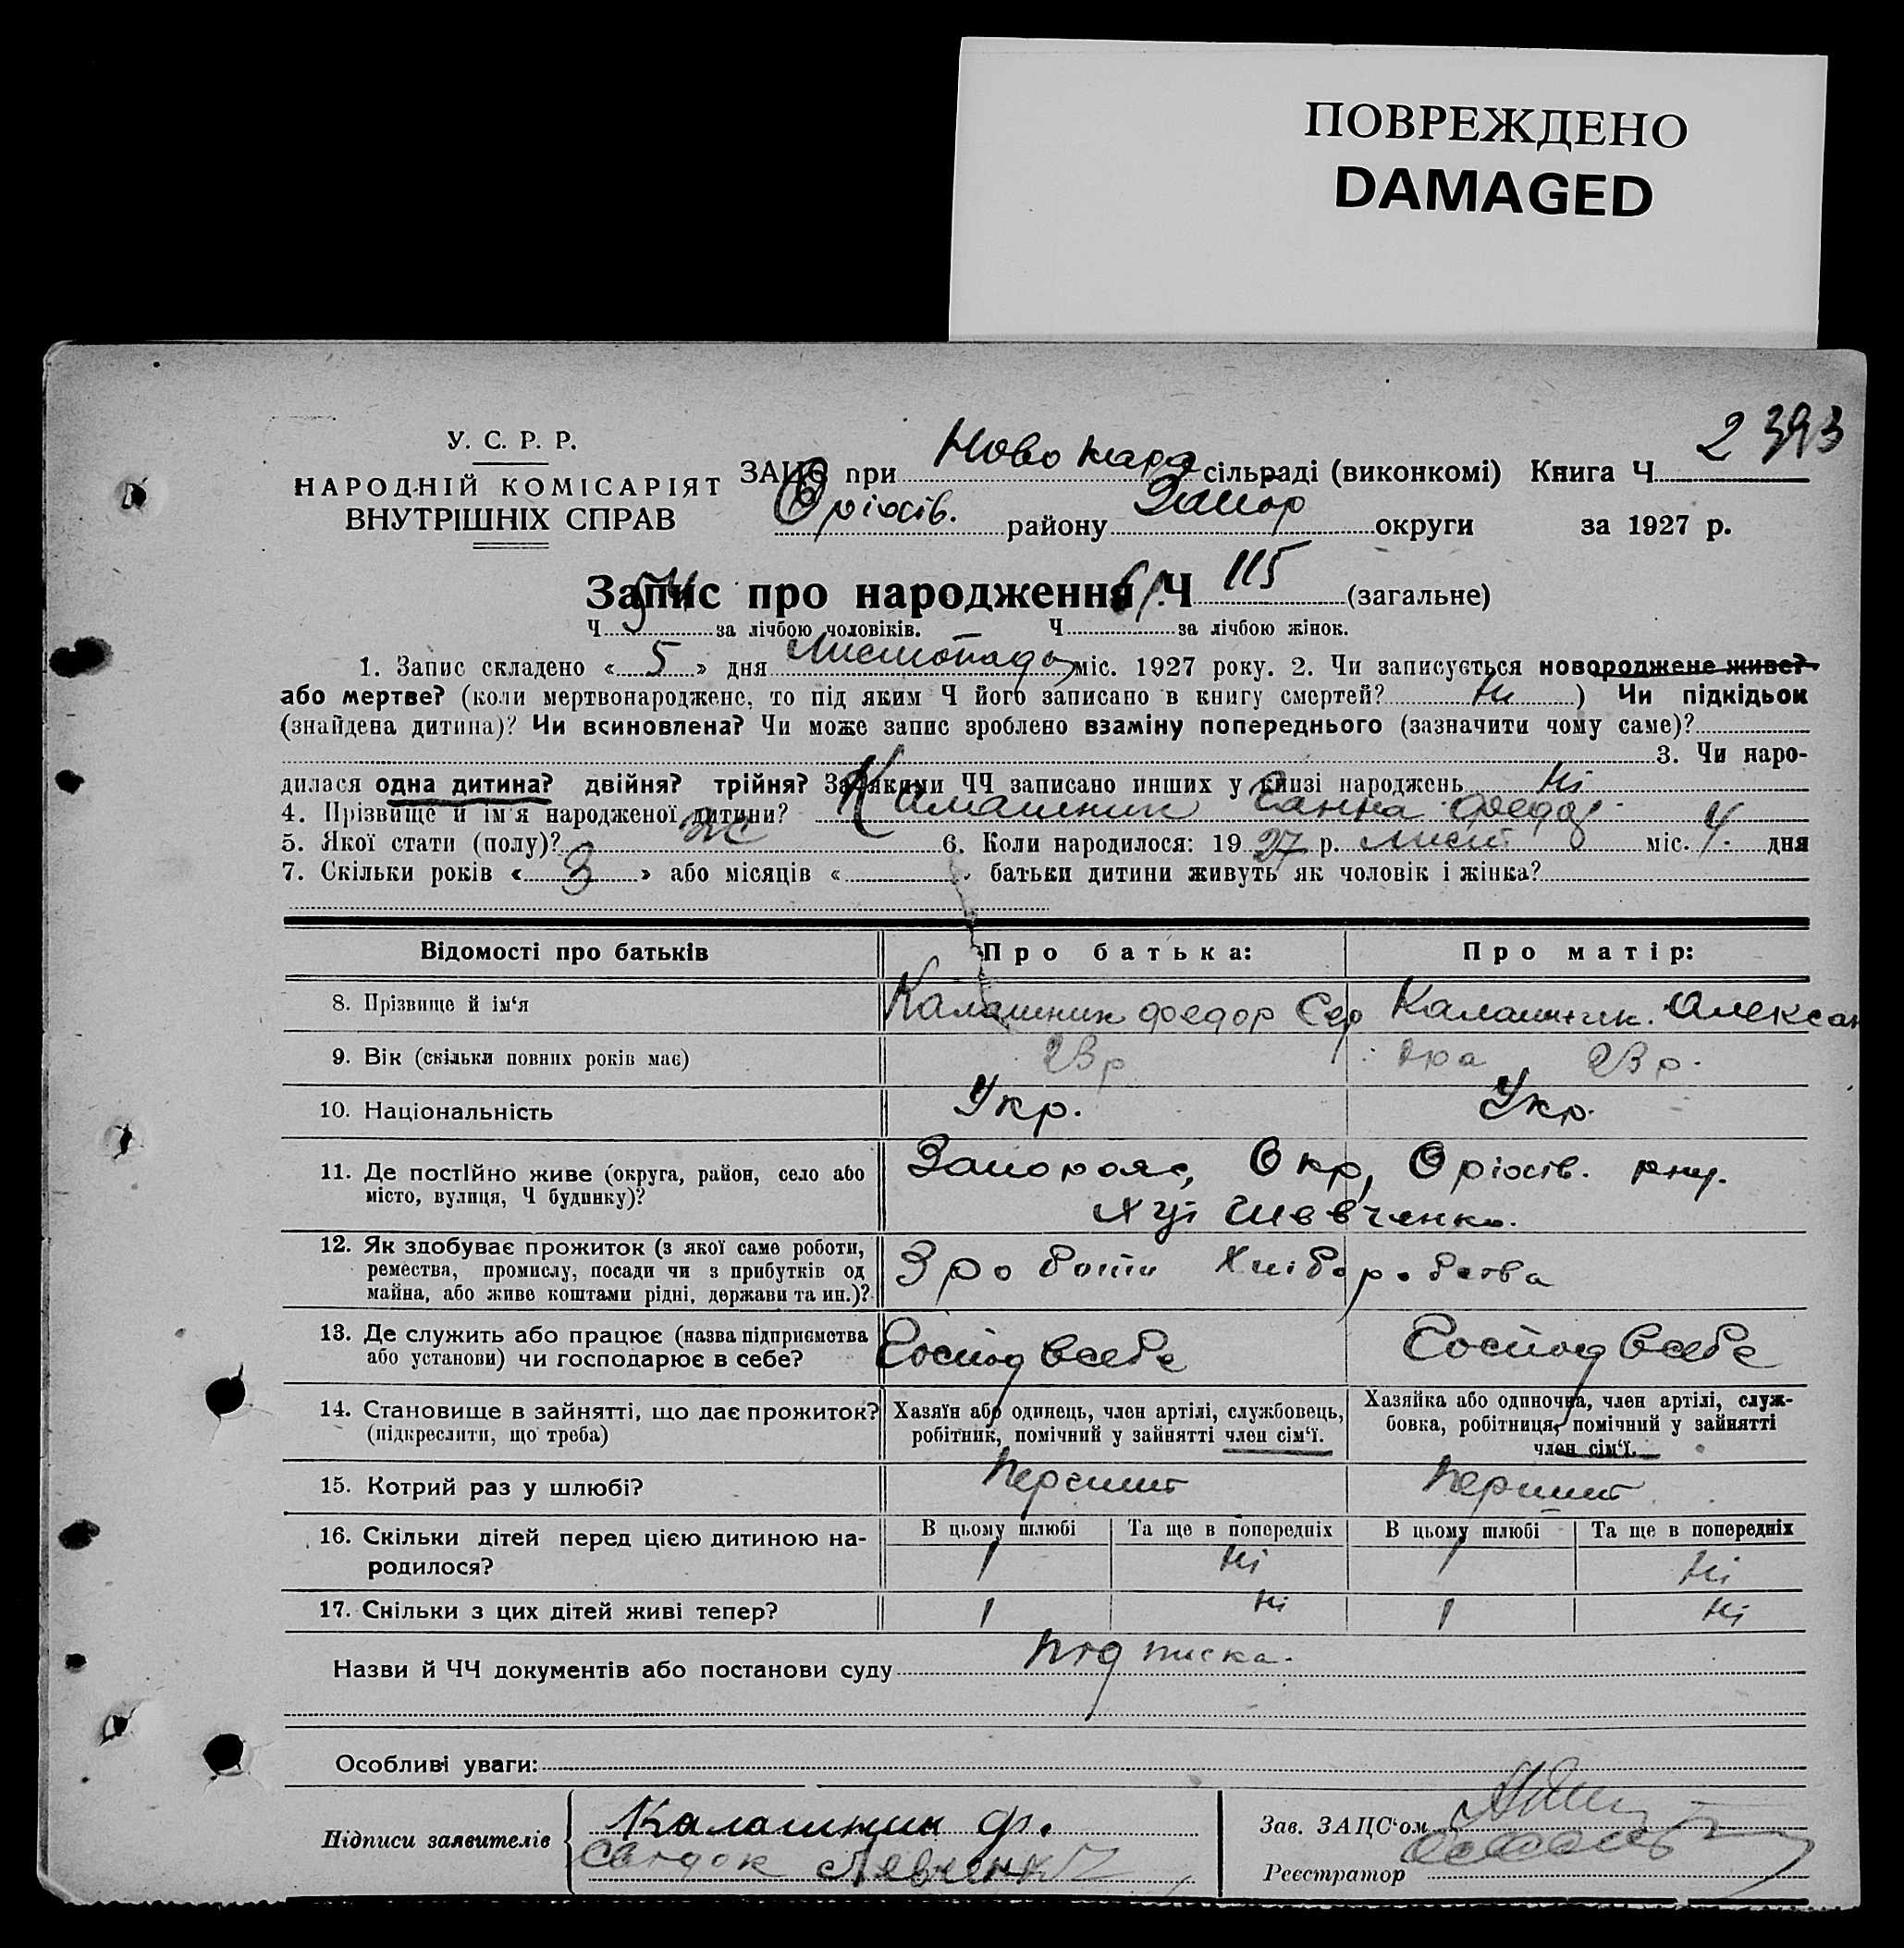 ПОВРЕЖДЕНО
DAMAGED
2393
У. С. Р. Р.
НАРОДНІЙ КОМІСАРІЯТ
ВНУТРІШНІХ СПРАВ
ЗАЦС при Ново сільраді (виконкомі) Книга Ч
Оріхів. району Запор округи за 1927 р.
Запис про народження Ч 115 (загальне)
Ч 54 за лічбою чоловіків. Ч 61 за лічбою жінок.
1. Запис складено « 5 » дня Листопада міс. 1927 року. 2. Чи записується новороджене живе?
або мертве? (коли мертвонароджене, то під яким Ч його записано в книгу смертей? Ні ) Чи підкідьок
(знайдена дитина)? Чи всиновлена? Чи може запис зроблено взаміну попереднього (зазначити чому саме)?
3. Чи наро-
дилася одна дитина? двійня? трійня? За якими ЧЧ записано инших у книзі народжень Ні
4. Прізвище й ім'я народженої дитини? Калашник Ганна Федор
5. Якої стати (полу)? ж 6. Коли народилося: 1927 р. лист міс. 4 дня
7. Скільки років « 3 » або місяців « батьки дитини живуть як чоловік і жінка?
Відомості про батьків Про батька: Про матір:
8. Прізвище й ім'я Калашник Федор Калашник. Алексан
9. Вік (скільки повних років має) 23 р дра 23 р.
10. Національність Укр. Укр.
11. Де постійно живе (округа, район, село або Окр, Оріхів. рну.
місто, вулиця, Ч будинку)? Хут Шевченко.
12. Як здобуває прожиток (з якої саме роботи,
ремества, промислу, посади чи з прибутків од З роботи
майна, або живе коштами рідні, держави та ин.)?
13. Де служить або працює (назва підприємства Господ в себе Господ в себе
або установи) чи господарює в себе?
14. Становище в зайнятті, що дає прожиток? Хазяїн або одинець, член артілі, службовець, Хазяйка або одиночна, член артілі, служ-
(підкреслити, що треба) робітник, помічний у зайнятті член сім'ї. бовка, робітниця, помічний у зайнятті
член сім'ї.
15. Котрий раз у шлюбі?
16. Скільки дітей перед цією дитиною на- В цьому шлюбі Та ще в попередніх В цьому шлюбі Та ще в попередніх
родилося? 1 Ні 1 Ні
17. Скільки з цих дітей живі тепер? 1 Ні 1 Ні
Назви й ЧЧ документів або постанови суду Підписка.
Особливі уваги:
Підписи заявителів Калашник Ф.
Свідок Левченко
Зав. ЗАЦС'ом
Реєстратор